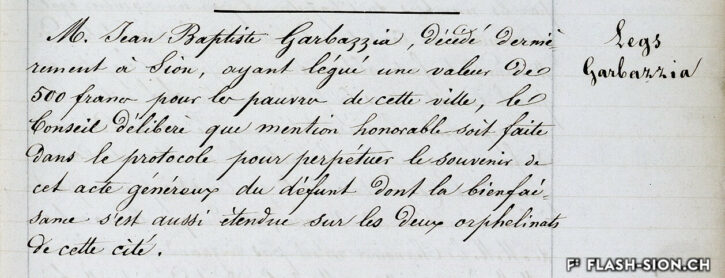 M. Jean Baptiste Garbazzia, décédé derniè-
rement à Sion, ayant légué une valeur de
500 francs pour les pauvres de cette ville, le
Conseil délibère que mention honorable soit faite
dans le protocole pour perpétuer le souvenir de
cet acte généreux du défunt dont la bienfai-
sance s'est aussi étendue sur les deux orphelinats
de cette cité.
Legs
Garbazzia
FLASH-SION.CH